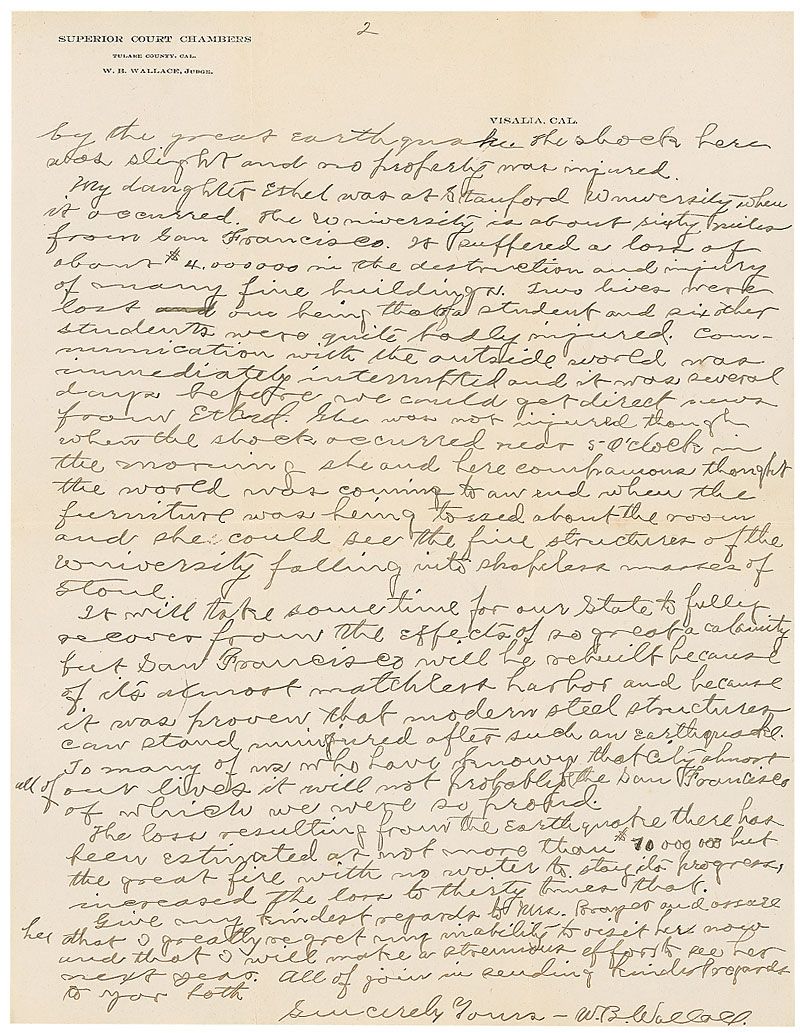 2
SUPERIOR COURT CHAMBERS
TULARE COUNTY, CAL.
W. B. WALLACE, JUDGE.
VISALIA, CAL.
by the great earthquake. The shock here
was slight and no property was injured.
My daughter Ethel was at Stanford University when
it occurred. The University is about sixty miles
from San Francisco. It suffered a loss of
about $4.000000 in the destruction and injury
of many fine buildings. Two lives were
lost and one being that of a student and six other
students were quite badly injured. Com-
munication with the outside world was
immediately interrupted and it was several
days before we could get direct news
from Ethel. She was not injured though
when the shock occurred near 5-O'clock in
the morning she and here companions thought
the world was coming to an end when the
furniture was being tossed about the room
and she could see the fine structures of the
University falling into shapeless masses of
stone.
It will take some time for our State to fully
recover from the effects of so great a calamity
but San Francisco will be rebuilt because
of its almost matchless harbor and because
it was proven that modern steel structures
can stand uninjured after such an earthquake.
To many of us who have known that City almost
all of our lives it will not probably be the San Francisco
of which we were so proud.
The loss resulting from the Earthquake there has
been estimated at not more than $10000000 but
the great fire with no water to stay its progress,
increased the loss to thirty times that.
Give my kindest regards to Mrs. and assure
her that I greatly regret my inability to visit her now
and that I will make a strenuous effort to see her
next year. All of join in sending kindest regards
to you both
Sincerely Yours - W.B. Wallace.